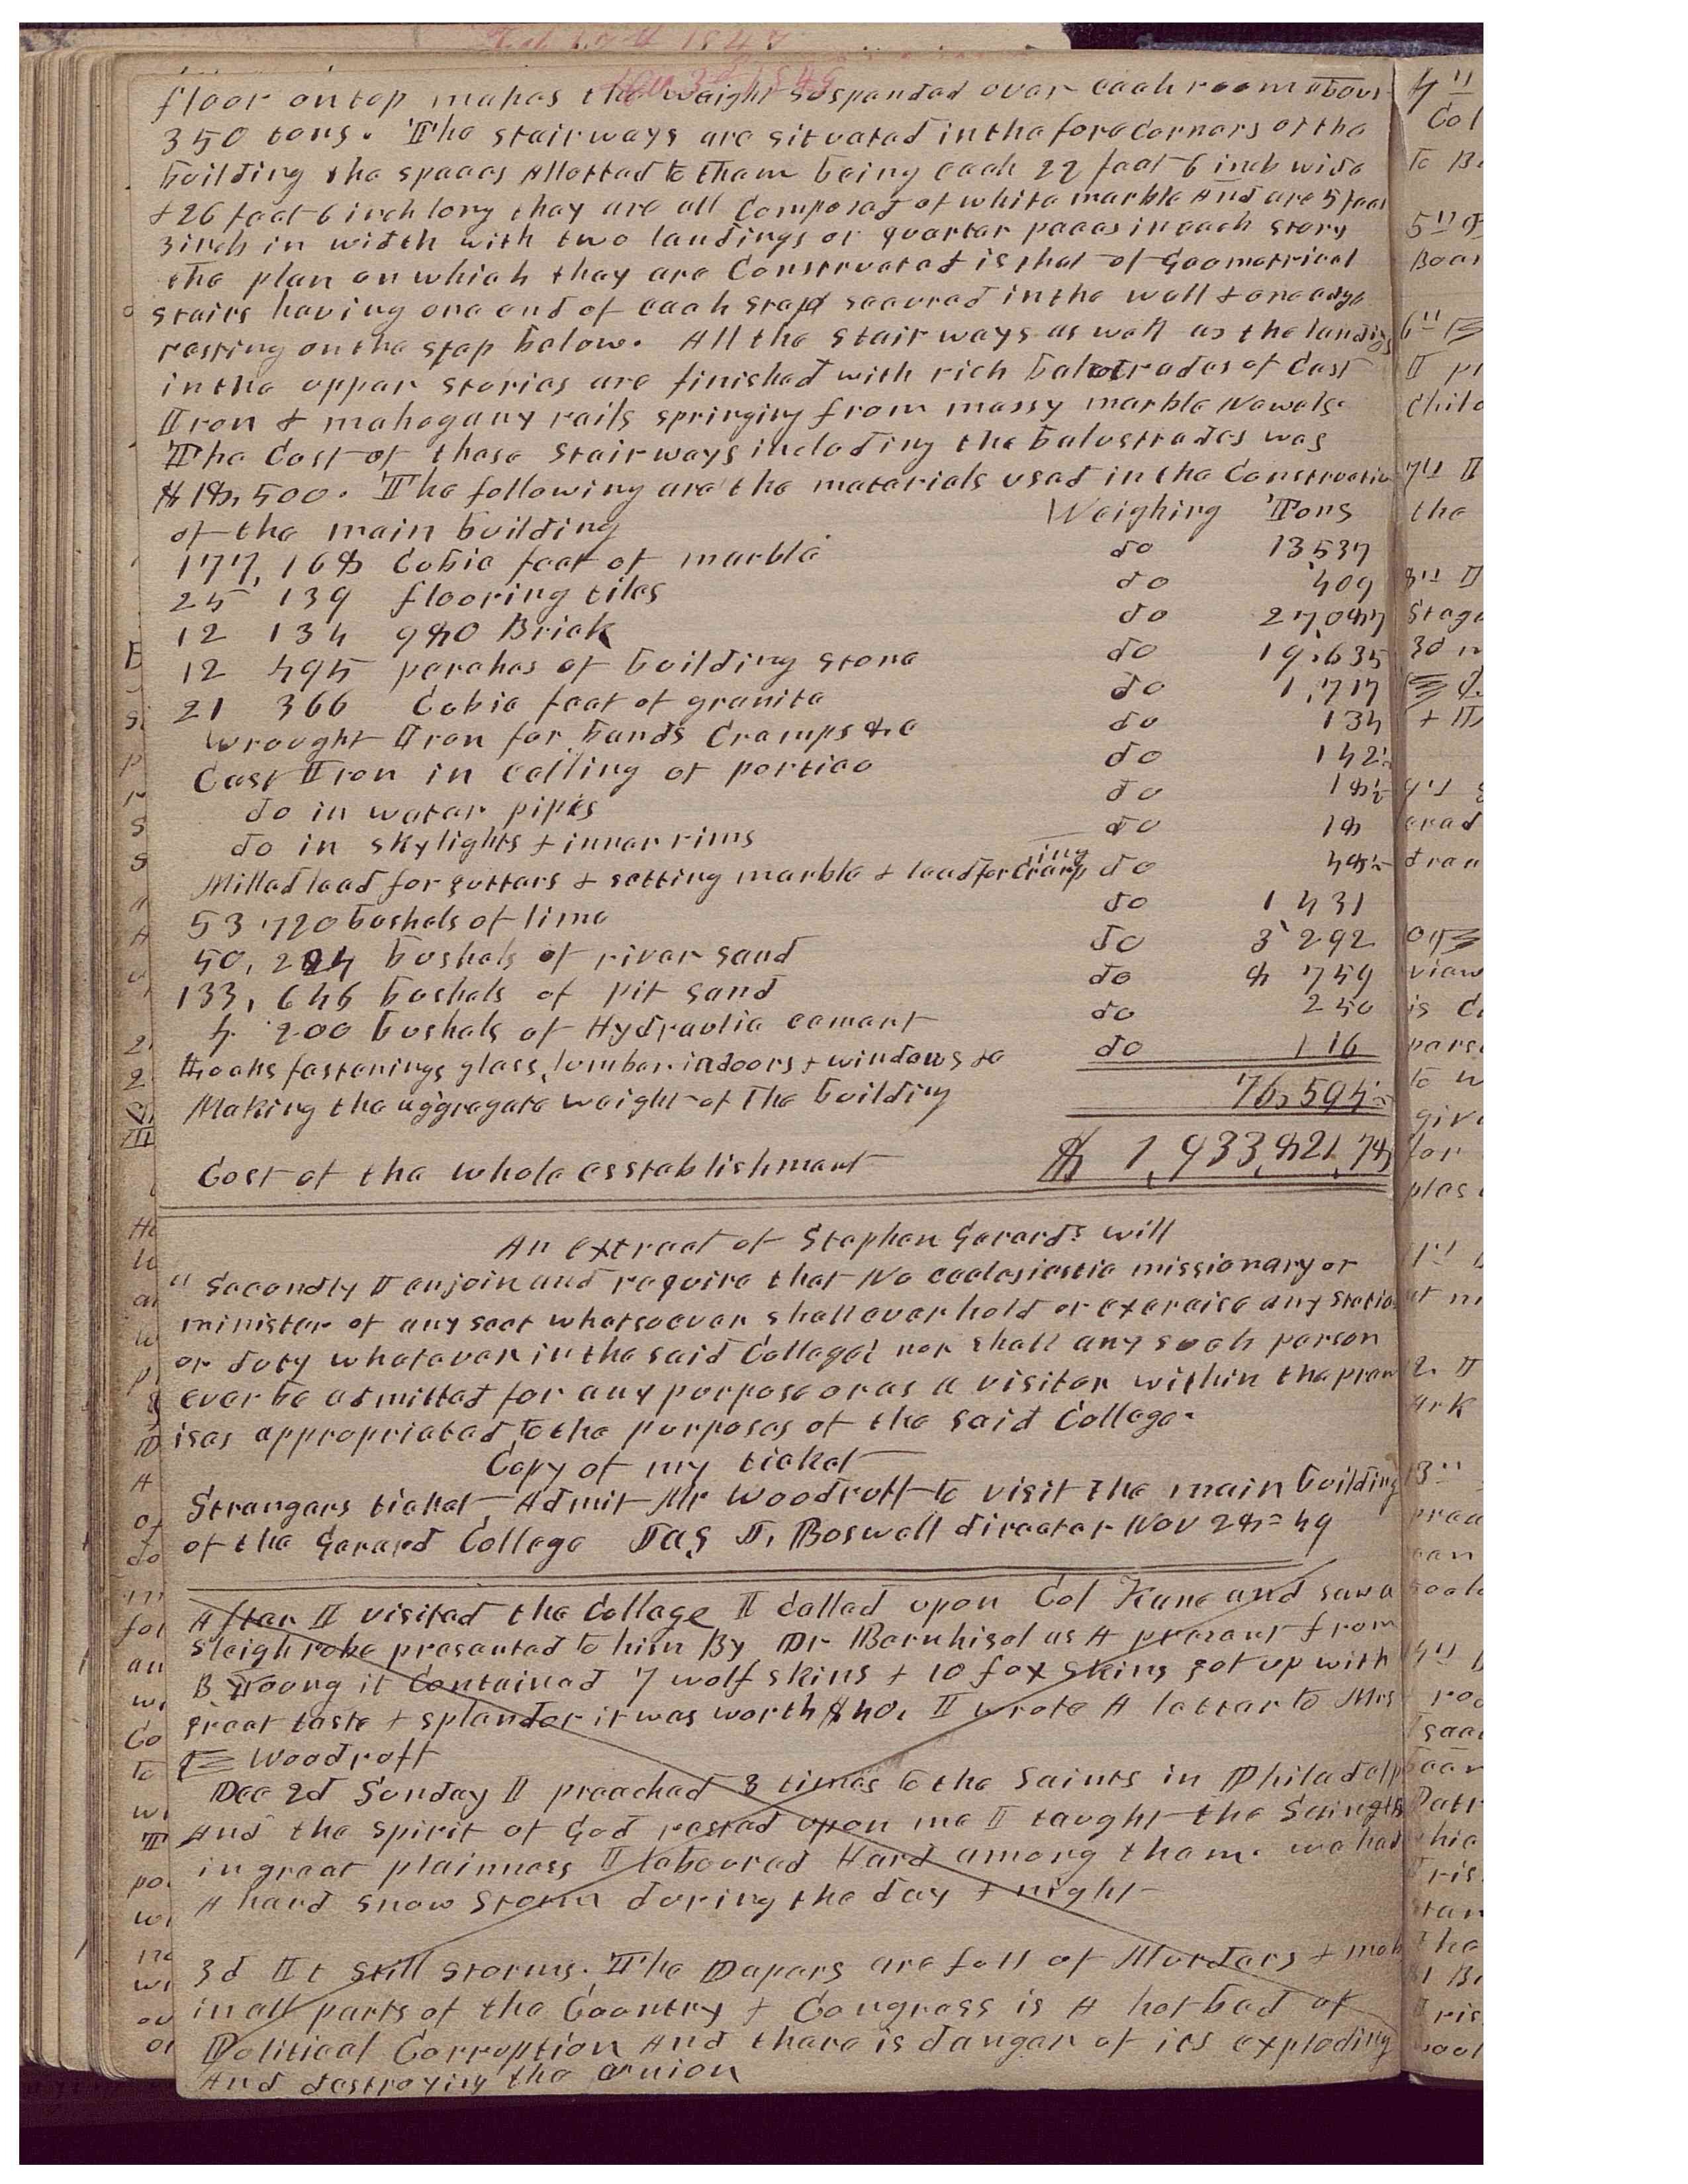 floor on top makes the weight suspended over each room about
350 tons. The stairways are situated in the fore Corners of the
building the spaces Allotted to them being each 22 feet 6 inch wide
& 26 feet 6 inch long they are all Composed of white marble And are 5 feet
3 inch in width with two landings or quarter paces in each story
the plan on which they are Constructed is that of Geometrical
stairs having one end of each step secured in the wall & one edge
resting on the step below. All the stair ways as well as the landings
in the upper stories are finished with rich balustrades of Cast
Iron & mahogany rails springing from massy marble Newels.
The Cost of these Stairways including the balustrades was
$18,500. The following are the materials used in the Construction
of the main building Weighing Tons
177,168 Cubic feet of marble do 13537
25 139 flooring tiles do 409
12 134 980 Brick do 27,087
12 495 perches of building stone do 19,635
21 366 Cubic feet of granite do 1,717
Wrought Iron for bands Cramps &c do 134
Cast Iron in celling of portico do 142½
do in water pipes do 18½
do in skylights & inner rims do 18
Milled lead for gutters & setting marble & lead for Cramping do 48½
53 720 bushels of lime do 1 431
50,284 bushels of river sand do 3 292
133,646 bushels of pit sand do 8 759
4 200 bushels of Hydraulic cement do 250
Hooks fastenings glass, lumber in doors & windows &c do 116
Making the aggregate weight of The building 76,594½
Cost of the whole esstablishment $ 1,933,821,78
An extract of Stephen Gerards will
" Secondly I enjoin and require that No ecclesiastic missionary or
minister of any sect whatsoever shall ever hold or exercise any station
or duty whatever in the said College; nor shall any such person
ever be admitted for any purpose or as a visitor within the prem
ises appropriated to the purposes of the said College.
Copy of my ticket
Strangers ticket Admit Mr Woodruff to visit the main building
of the Gerard College Jas J. Boswell director Nov 28= 49
After I visited the College I Called upon Col Kane and saw a
Sleigh robe presented to him By Dr Bernhisel as A present from
B Young it Contained 7 wolf skins & 10 fox skins got up with
great taste & splendor it was worth $40. I wrote A letter to Mrs
E Woodruff
Dec 2d Sunday I preached 3 times to the Saints in Philadelp
And the spirit of God rested upon me I taught the Saingts
in great plainness I laboured Hard among them. we had
A hard snow storm during the day & night
3d It still storms. The Papers are full of Murders & mob
in all parts of the Country & Congress is A hot bed of
Political Corruption And there is danger of its exploding
And destroying the union